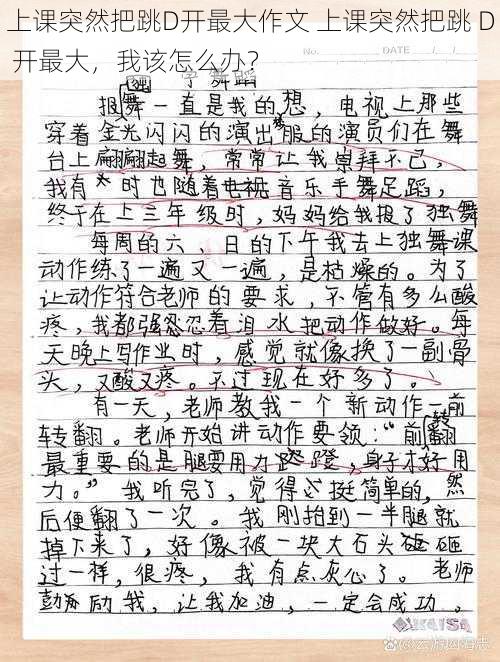 上课突然把跳D开最大作文 上课突然把跳 D
开最大，我该怎么办？
学舞蹈
独
NO.
DATE / /
报舞一直是我的想，电视上那些
穿着金光闪闪的演出服的演员们在舞
台上翩翩起舞，常常让我崇拜不已，
我有时也随着电视音乐手舞足蹈，
终于在上三年级时，妈妈给我报了独舞
每周的六、日的下午我去上独舞课
动作练了一遍又一遍，是枯燥的。为了
让动作符合老师的要求，不管有多么酸
疼，我都强忍忍着泪水把动作做好。每
天晚上写作业时，感觉就像换了一副骨
头，又酸又疼。不过现在好多了。
有一天，老师教我一个新动作—前
转
转翻。老师开始讲动作要领：“前翻
最重要的是腿要用力蹬，身子才好用
力。”我听完了，觉得挺简单的，然
后便翻了一次。我刚拍到一半腿就
掉下来了，好像被一块大石头砸砸
过一样，很疼，我有点灰心了。老师
励我，让我加油，一定会成功。